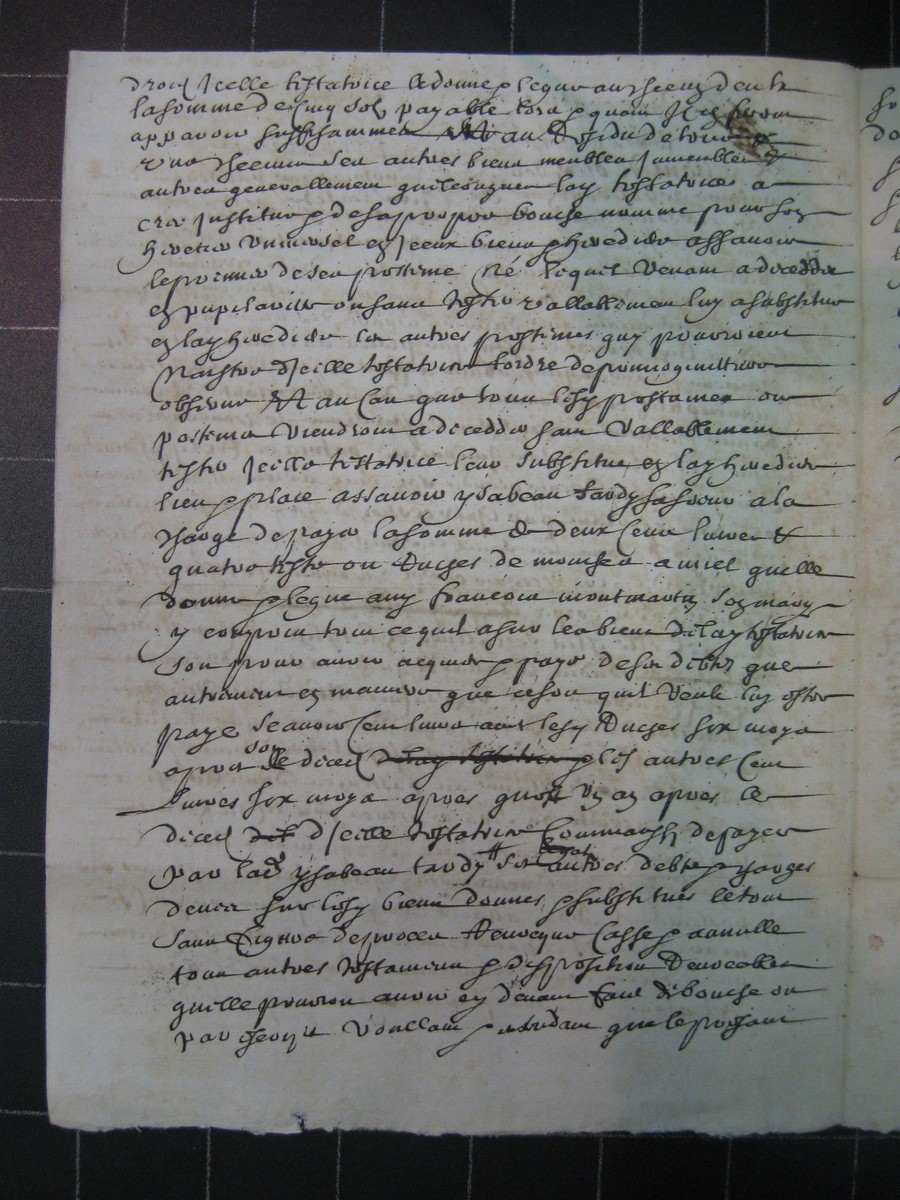 droict icelle testatrice a donne & legue aux siens
la somme de cinq solz payable lors & quant Ilz feront
apparoir suffisammen au Residu de tous
une siens ses autres biens meubles Immeubles &
autres generallement quelconques lad testatrice a
cree institue & de sa propre bouche nomme pour son
heretier universel en iceux biens & heredite assavoir
le premier de ses postume Né lequel venant a decedder
en pupilarite ou sans tester vallablemen luy a substitue
en lad heredite les autres postumes quy pourroient
Naistre d'Icelle testatrice l'ordre de primogeniture
observe Et au cas que tous lesd postumes ou
postume viendroit a decedder sans vallablement
tester Icelle testatrice leur substitue en lad heredite
lieu & place assavoir ysabeau tardy sa sœur a la
charge de payer la somme de deux cens livres &
quatre ruches de mousches a miel quelle
donne & legue aud francois montmartin son mary
y compris tout ce quil a sur les biens de lad testatrice
soit pour avoir acquitte & paye de ses debtes que
autrement en maniere que ce soit quil veult luy estre
paye scavoir cent livres lesd Ruches six moys
apres son deces & les autres cent
livres six moys apres quest un an apres le
deces d'Icelle testatrice Commansant de payer
par lad ysabeau tardy ses autres debtes & charges
deues sur lesd biens donnes & substitues le tout
sans figure de proces Revocque casse & annulle
tous autres testamens & disposition Revocables
quelle pourroit avoir cy devant faict de bouche ou
par escript voullant & entendant que le present